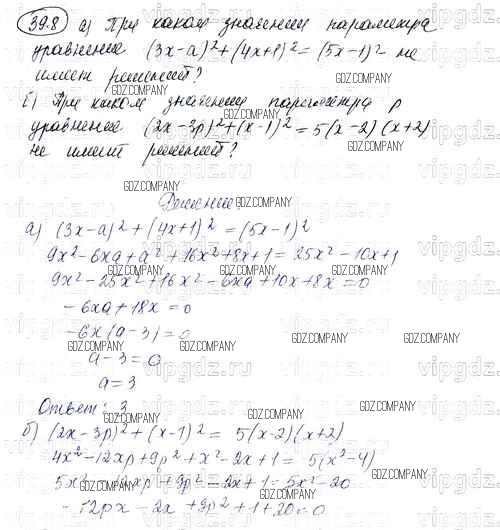 39.8 а) При каком значении параметра
уравнение (3x-a)²+(4x+1)²=(5x-1)² не
имеет решений?
б) При каком значении параметра p
уравнение (2x-3p)²+(x-1)²=5(x-2)(x+2)
не имеет решений?
Решение:
а) (3x-a)²+(4x+1)²=(5x-1)²
9x²-6xa+a²+16x²+8x+1=25x²-10x+1
9x²-25x²+16x²-6xa+10x+8x=0
-6xa+18x=0
-6x(a-3)=0
a-3=0
a=3
Ответ: 3
б) (2x-3p)²+(x-1)²=5(x-2)(x+2)
4x²-12xp+9p²+x²-2x+1=5(x²-4)
5x²-12xp+9p²-2x+1=5x²-20
-12px-2x+9p²+1+20=0
GDZ.COMPANY
vipgdz.ru